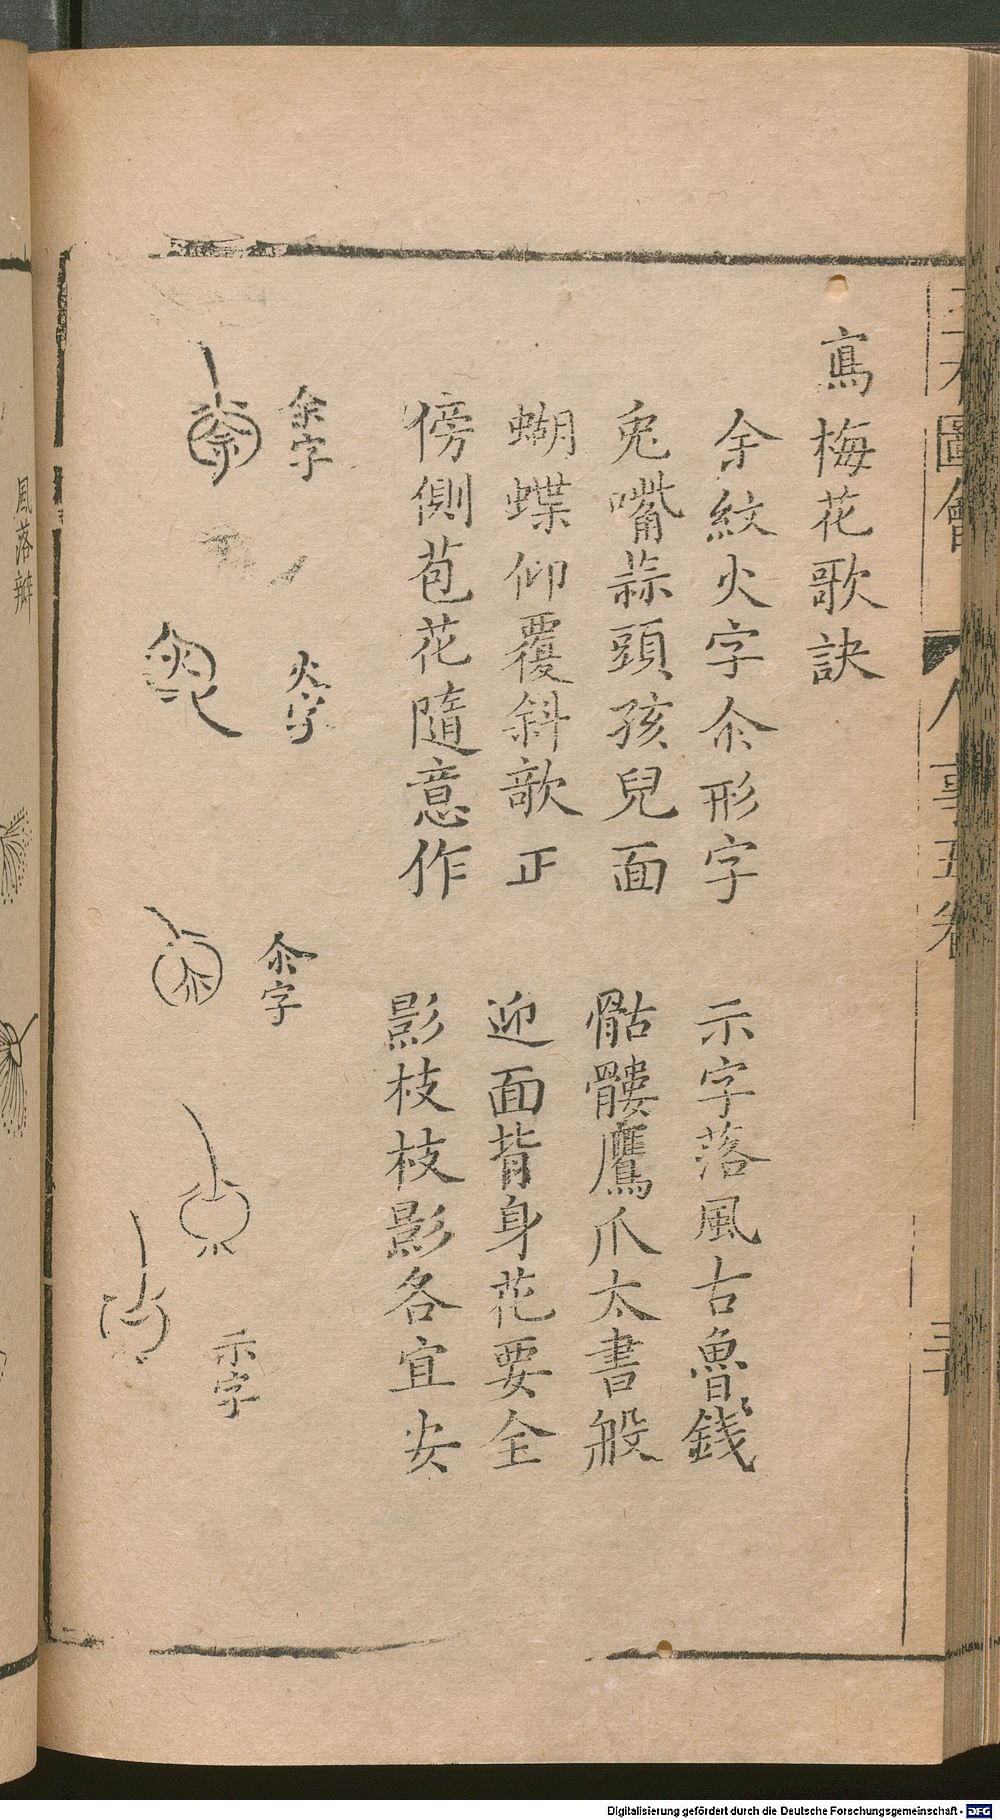 寫梅花歌訣
余紋火字尒形字　示字落風古魯錢
兎嘴蒜頭孩兒面　骷髏鷹爪太書般
蝴蝶仰覆斜歆正　迎面背身花要全
傍側苞花隨意作　影枝枝影各宜安
余字
火字
尒字
示字
圖會
人事五卷
風落瓣
Digitalisierung gefördert durch die Deutsche Forschungsgemeinschaft - DFG